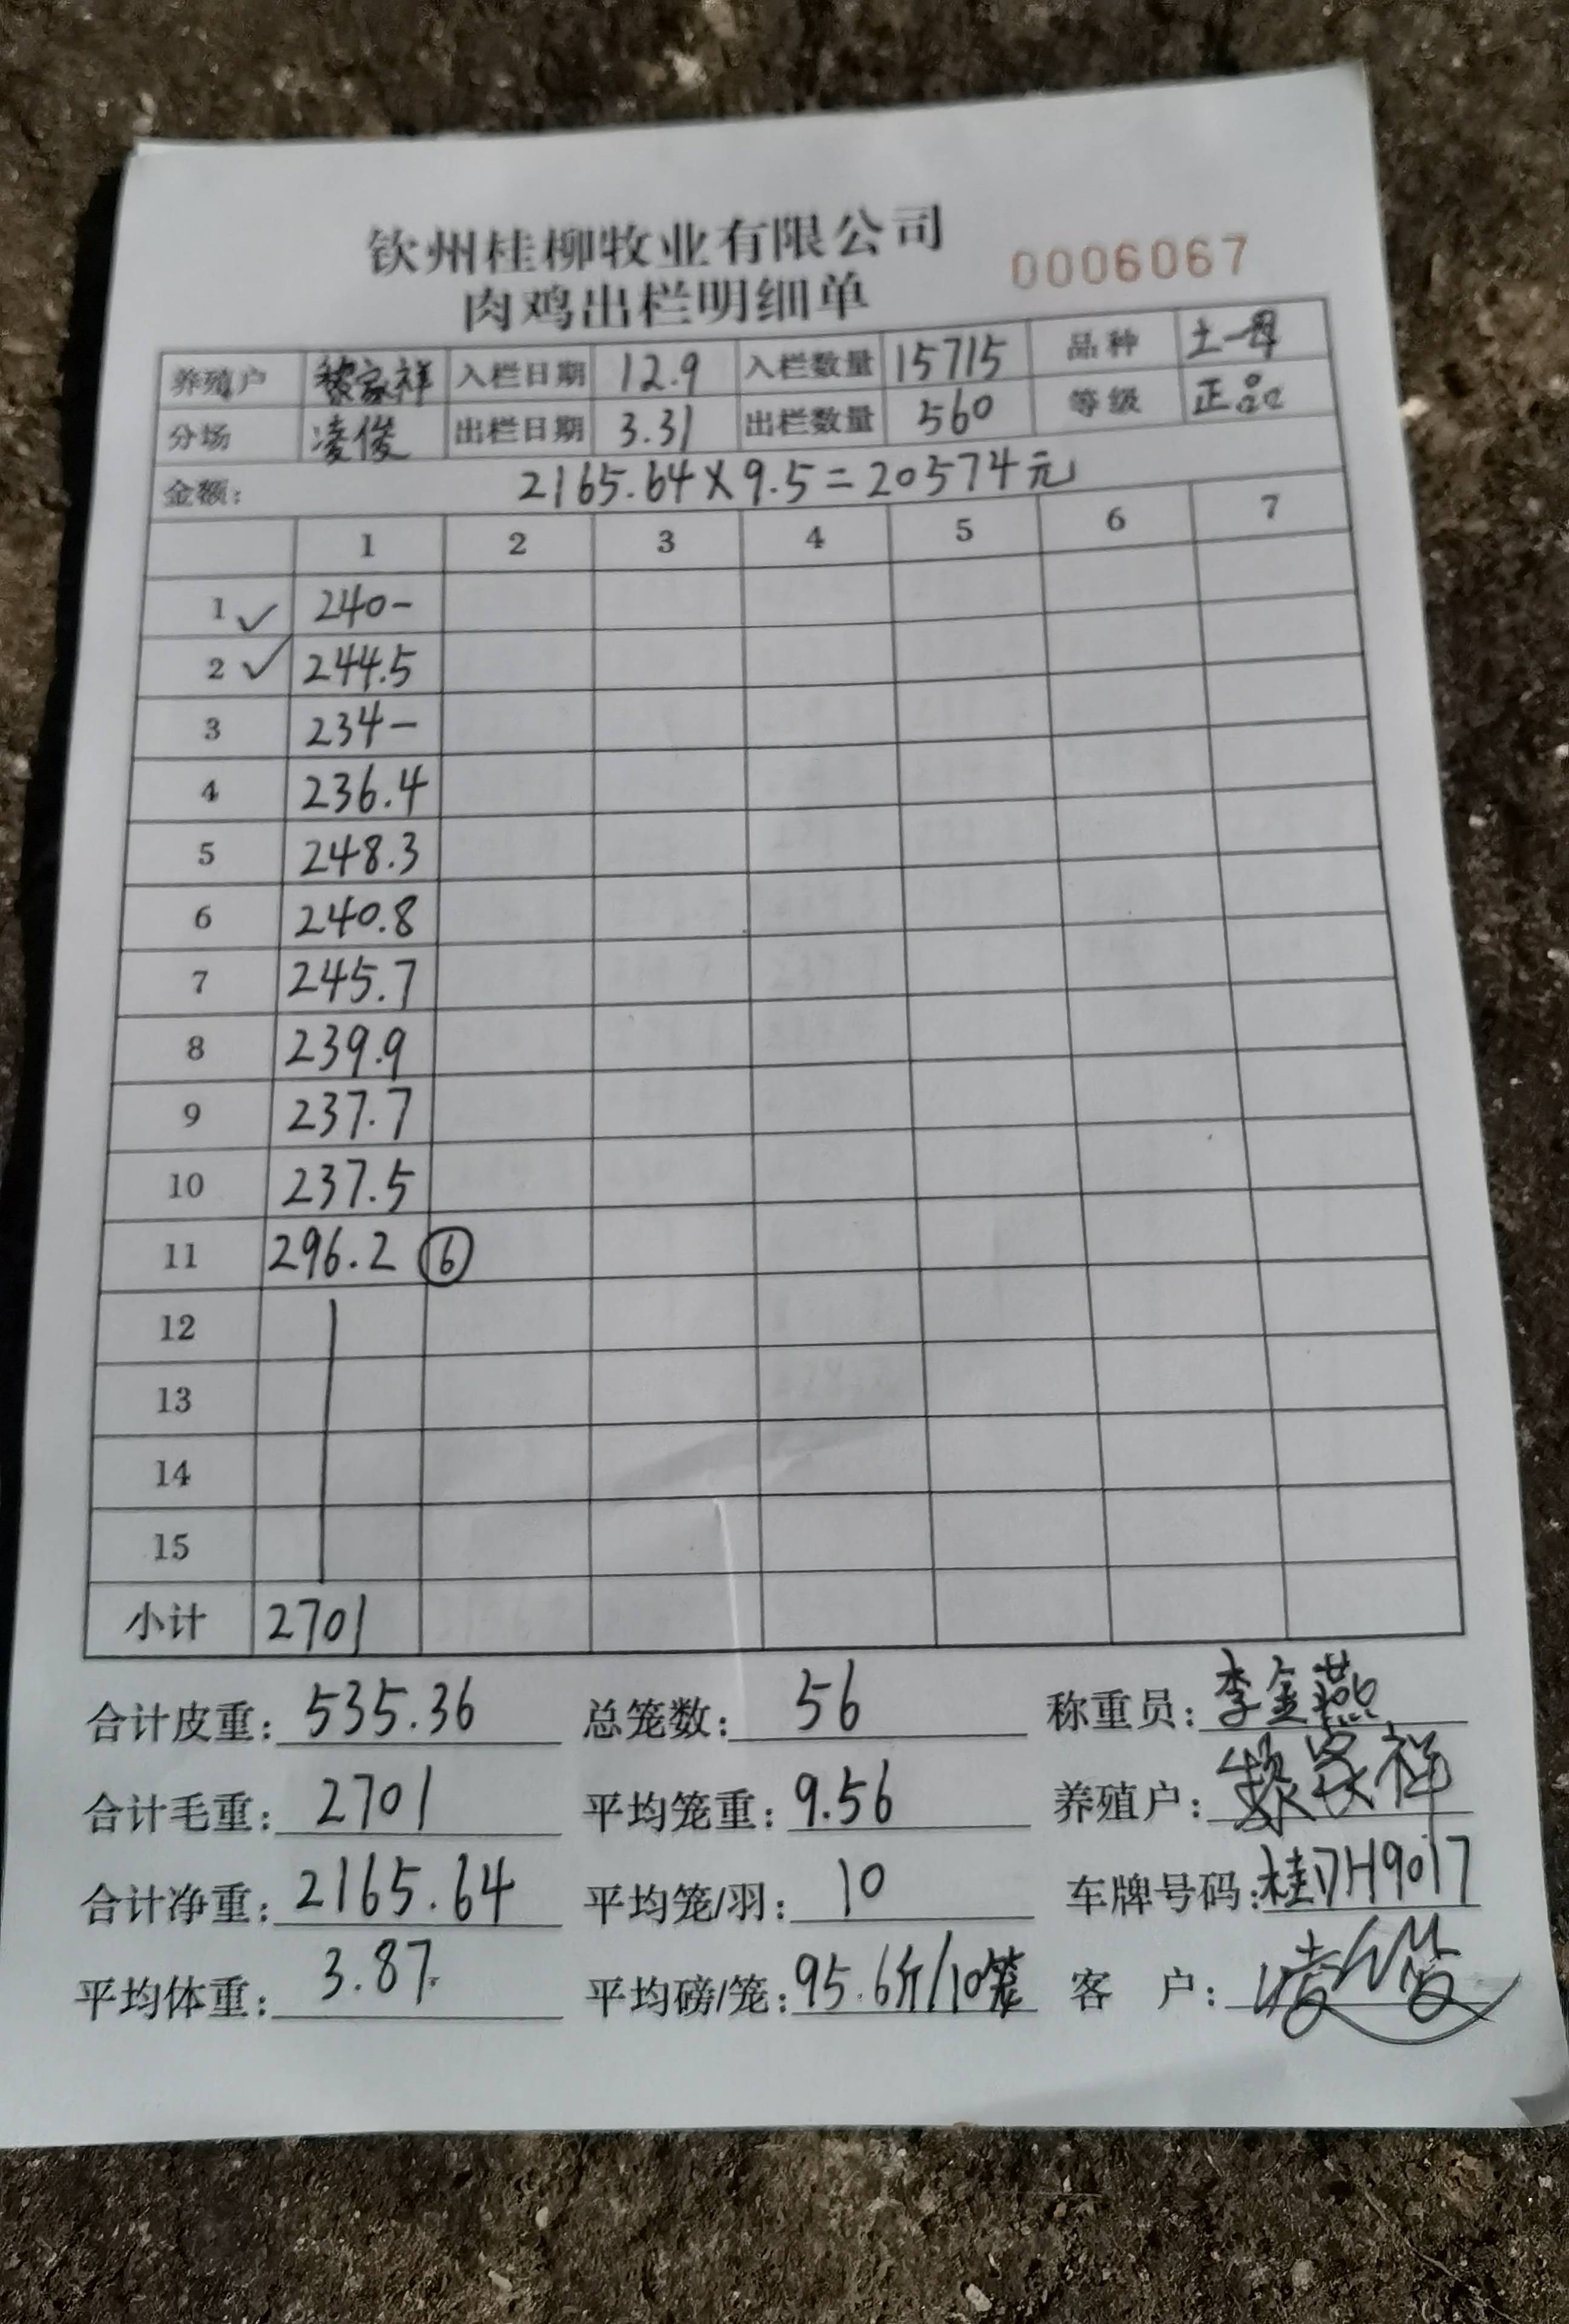 钦州桂柳牧业有限公司
肉鸡出栏明细单 0006067
养殖户 黎家祥 入栏日期 12.9 入栏数量 15715 品种 土一母
分场 凌俊 出栏日期 3.31 出栏数量 560 等级 正品
金额: 2165.64×9.5=20574元
1 2 3 4 5 6 7
1 ✓ 240-
2 ✓ 244.5
3 234-
4 236.4
5 248.3
6 240.8
7 245.7
8 239.9
9 237.7
10 237.5
11 296.2 ⑥
12
13
14
15
小计 2701
合计皮重: 535.36 总笼数: 56 称重员: 李金燕
合计毛重: 2701 平均笼重: 9.56 养殖户: 黎家祥
合计净重: 2165.64 平均笼/羽: 10 车牌号码: 桂DH9017
平均体重: 3.87 平均磅/笼: 95.6斤/10笼 客 户: